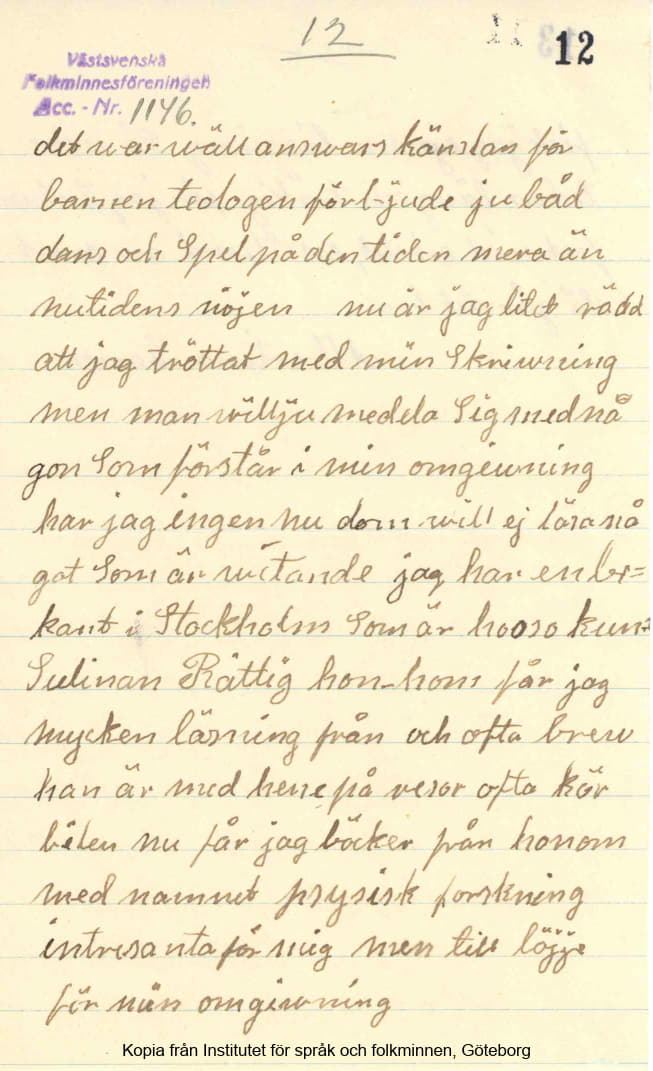 12
12
Västsvenska
Folkminnesföreningen
Acc. - Nr. 1146.
det war wäll answars känslan för
barnen teologen förbjude ju båd
dans och Spel på den tiden mera än
nutidens nöjen nu är jag litet rädd
att jag tröttat med min Skriwning
men man will ju medela Sig med nå
gon Som förstår i min omgiwning
har jag ingen nu dom will ej läsa nå
got Som är wetande jag har en be=
kant i Stockholm Som är hos kun=
Sulinan Rättig honom får jag
mycken läsning från och ofta brew
han är med hene på resor ofta kör
bilen nu får jag böcker från honom
med namnet psysisk forskning
intresanta för mig men till löjje
för min omgiwning
Kopia från Institutet för språk och folkminnen, Göteborg